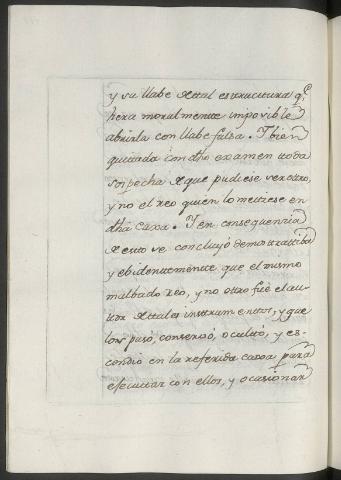 y su llabe de tal estructura q.e
hera moralmente imposible
abrirla con llabe falsa. Y bien
quitada con dho examen toda
sospecha de que pudiese ser otro,
y no el reo quien lo metiese en
dha caxa. Y en consequenzia
de esto se concluyó demostratiba
y ebidentemente que el mismo
malbado reo, y no otro fué el au-
tor de tales instrumentos, y que
los pusó, conservó, ocultó, y es-
condió en la referida caxa para
efecutar con ellos, y ocasionar